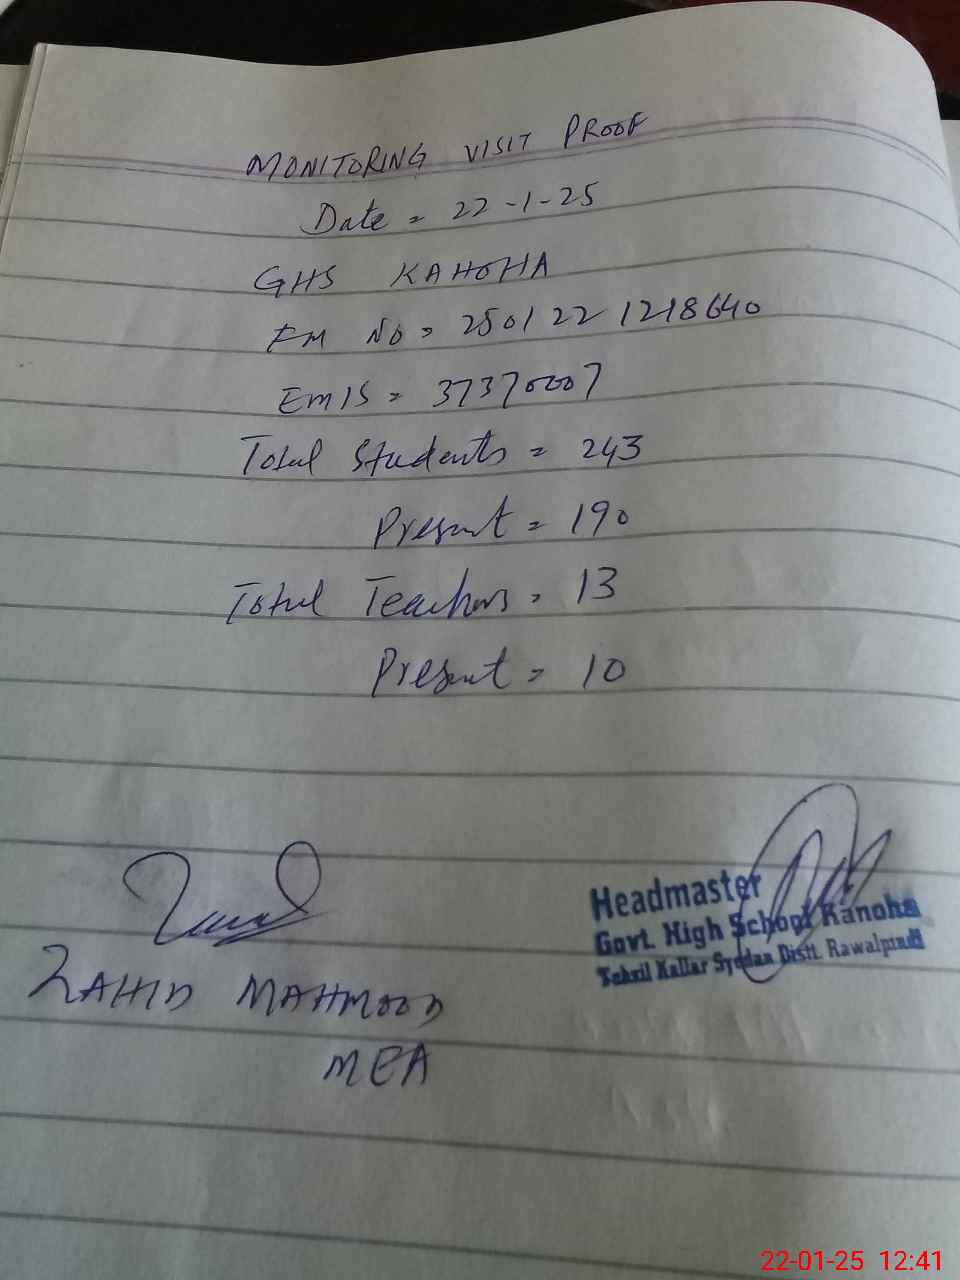 MONITORING VISIT PROOF
Date = 22-1-25
GHS KAHOHA
EM No = 2501221218640
EMIS = 37370007
Total Students = 243
Present = 190
Total Teachers = 13
Present = 10
ZAHID MAHMOOD
MEA
Headmaster
Govt. High School Kanoha
Tehsil Kallar Syedan Distt. Rawalpindi
22-01-25 12:41